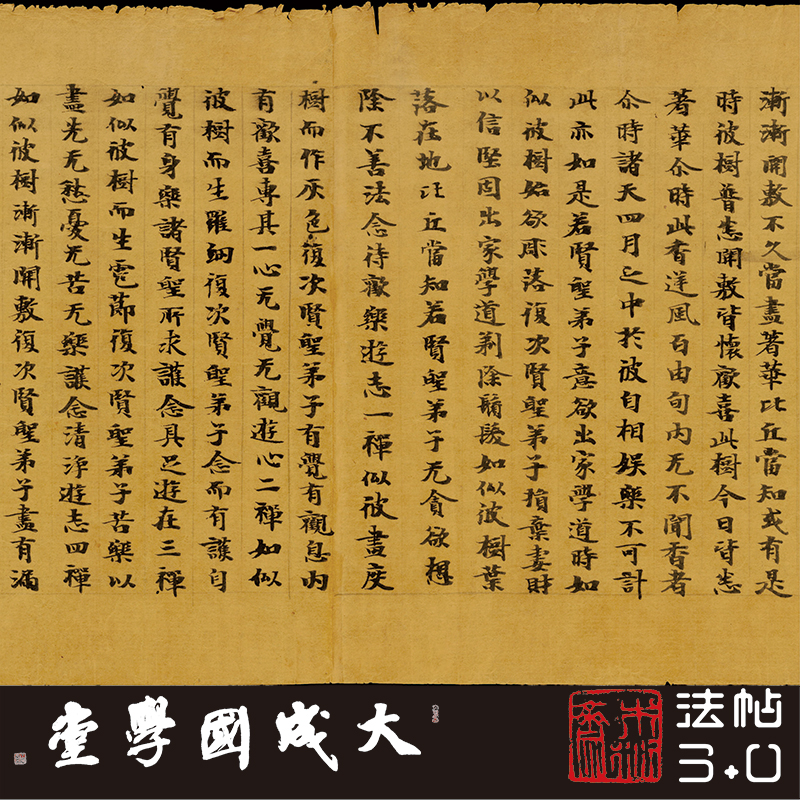 漸漸開敷不久當盡著華比丘當知或有是
時彼樹普悉開敷皆懷歡喜此樹今日皆悉
著華尒時此香逆風百由旬內无不聞香者
尒時諸天四月之中於彼自相娛樂不可計
此亦如是若賢聖弟子意欲出家學道時如
似彼樹始欲彫落復次賢聖弟子損棄妻財
以信堅固出家學道剃除鬚髮如似彼樹葉
落在地比丘當知若賢聖弟子无貪欲想
除不善法念待歡樂遊志一禪似彼晝度
樹而作灰色復次賢聖弟子有覺有觀息內
有歡喜專其一心无覺无觀遊心二禪如似
彼樹而生羅網復次賢聖弟子念而有護自
覺有身樂諸賢聖所求護念具足遊在三禪
如似彼樹而生雹節復次賢聖弟子苦樂以
盡先无愁憂无苦无樂護念清淨遊志四禪
如似彼樹漸漸開敷復次賢聖弟子盡有漏
大成國學堂
法帖
3.0